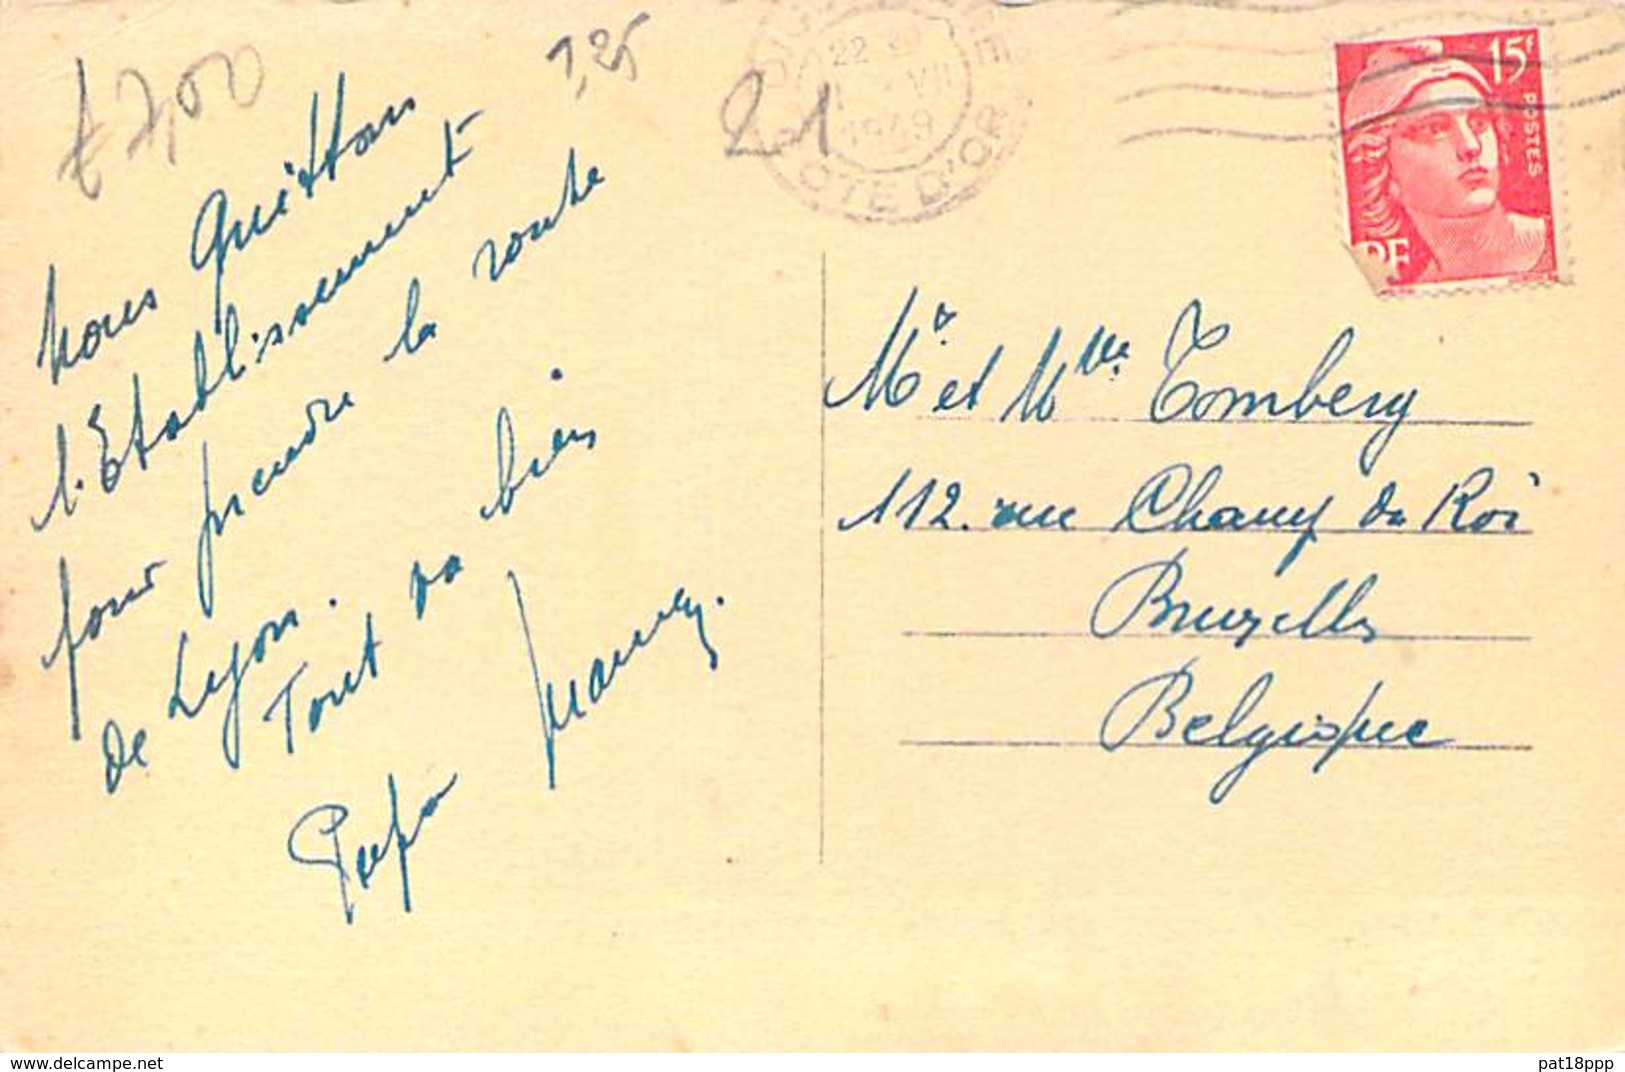 € 7,00
1,25
21
22
VII
1949
COTE D'OR
15F
POSTES
RF
Nous Quittons
l'Etablissement
pour prendre la route
de Lyon.
Tout va bien
Papa
Mr et Mme Tombery
112. rue Champ du Roi
Bruxelles
Belgique
delcampe.net
pat18ppp